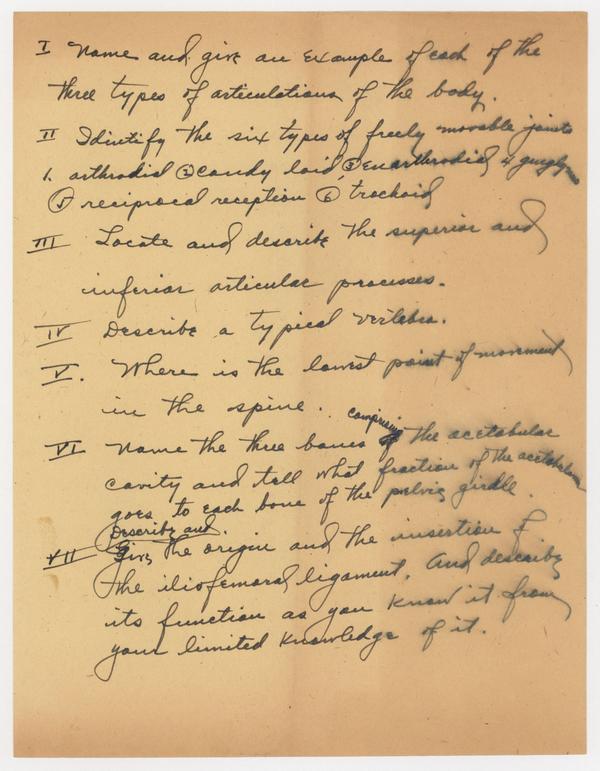 I Name and give an example of each of the
three types of articulations of the body.
II Idintify the six types of freely movable joints
1. arthrodial ② condy loid ③ enarthrodial 4 gingly
⑤ reciprocal reception ⑥ trochoid
III Locate and describe the superior and
inferior articular processes.
IV Describe a typical vertebra.
V. Where is the lowest point of movement
in the spine.
comprising
VI Name the three bones the acetabular
cavity and tell what fraction of the acetabulum
goes to each bone of the pelvic girdle.
Describe and
VII Give the origin and the insertion of
the iliofemoral ligament. And describe
its function as you know it from
your limited knowledge of it.